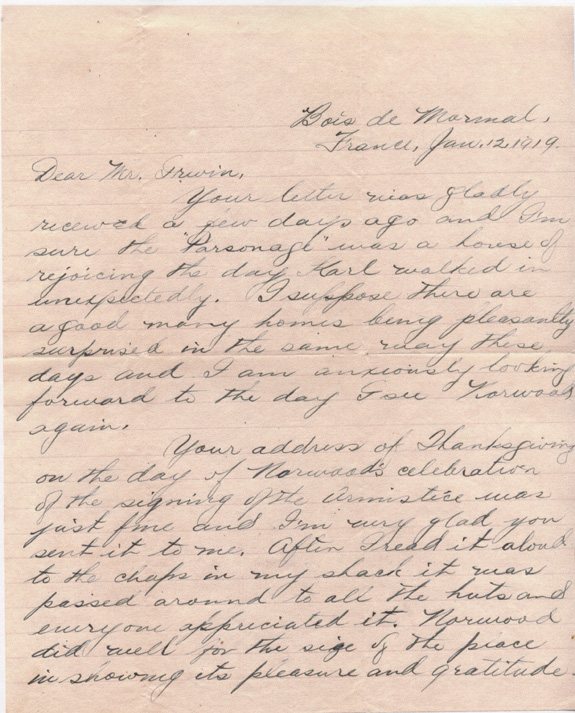 Bois de Mormal,
France, Jan. 12, 1919.
Dear Mr. Irwin,
Your letter was gladly
received a few days ago and I'm
sure the "Parsonage" was a house of
rejoicing the day Karl walked in
unexpectedly. I suppose there are
a good many homes being pleasantly
surprised in the same way these
days and I am anxiously looking
forward to the day I see Norwood
again.
Your address of Thanksgiving
on the day of Norwood's celebration
of the signing of the Armistice was
just fine and I'm very glad you
sent it to me. After I read it aloud
to the chaps in my shack it was
passed around to all the huts and
everyone appreciated it. Norwood
did well for the size of the place
in showing its pleasure and gratitude.